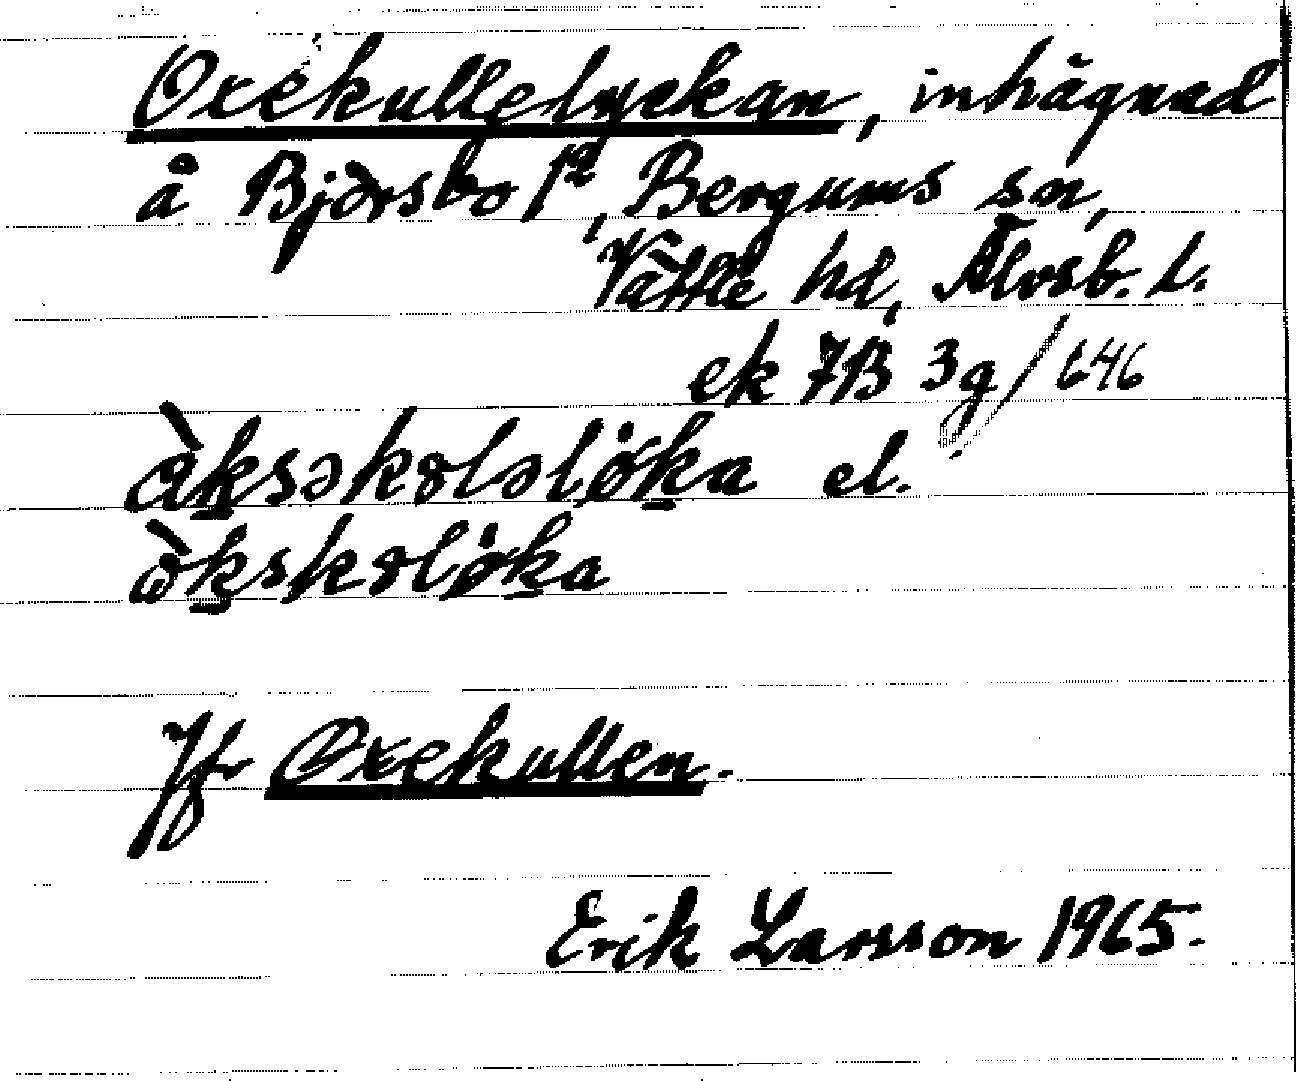 Oxekullelyckan, inhägnad
å Björsbo 1², Bergums sn,
Vättle hd, Älvsb. l.
ek 7B 3g/646
ὰksəkɤləlöka el.
ὼkskɤlöka
Jfr Oxekullen.
Erik Larsson 1965.